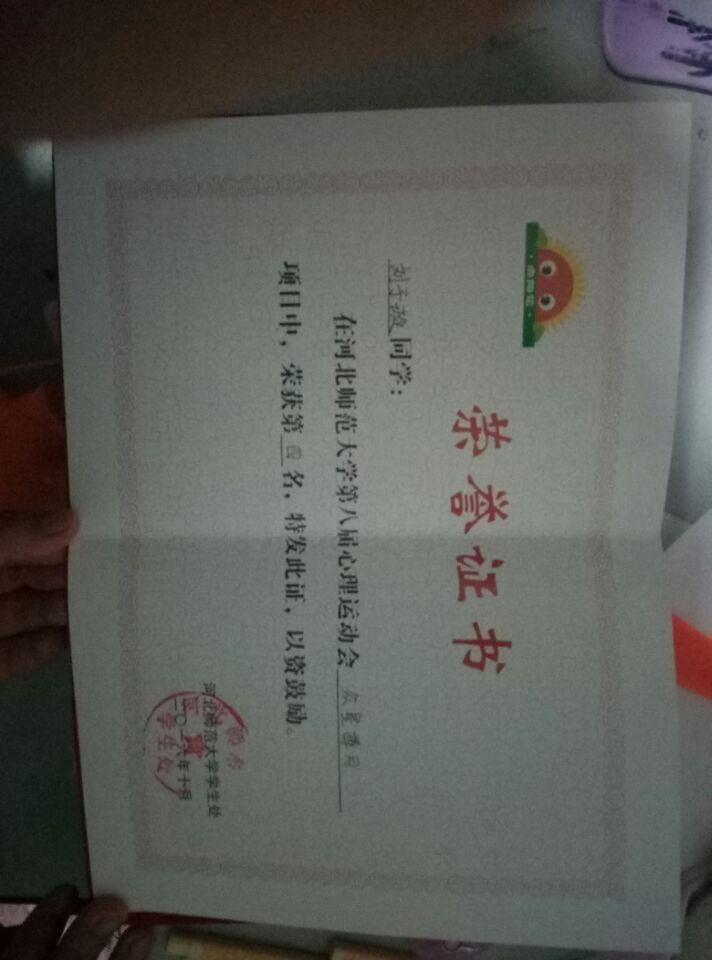 荣誉证书
刘子漩同学：
在河北师范大学第八届心理运动会众星捧月
项目中，荣获第四名，特发此证，以资鼓励。
河北师范大学学生处
二〇一六年十月
学生处